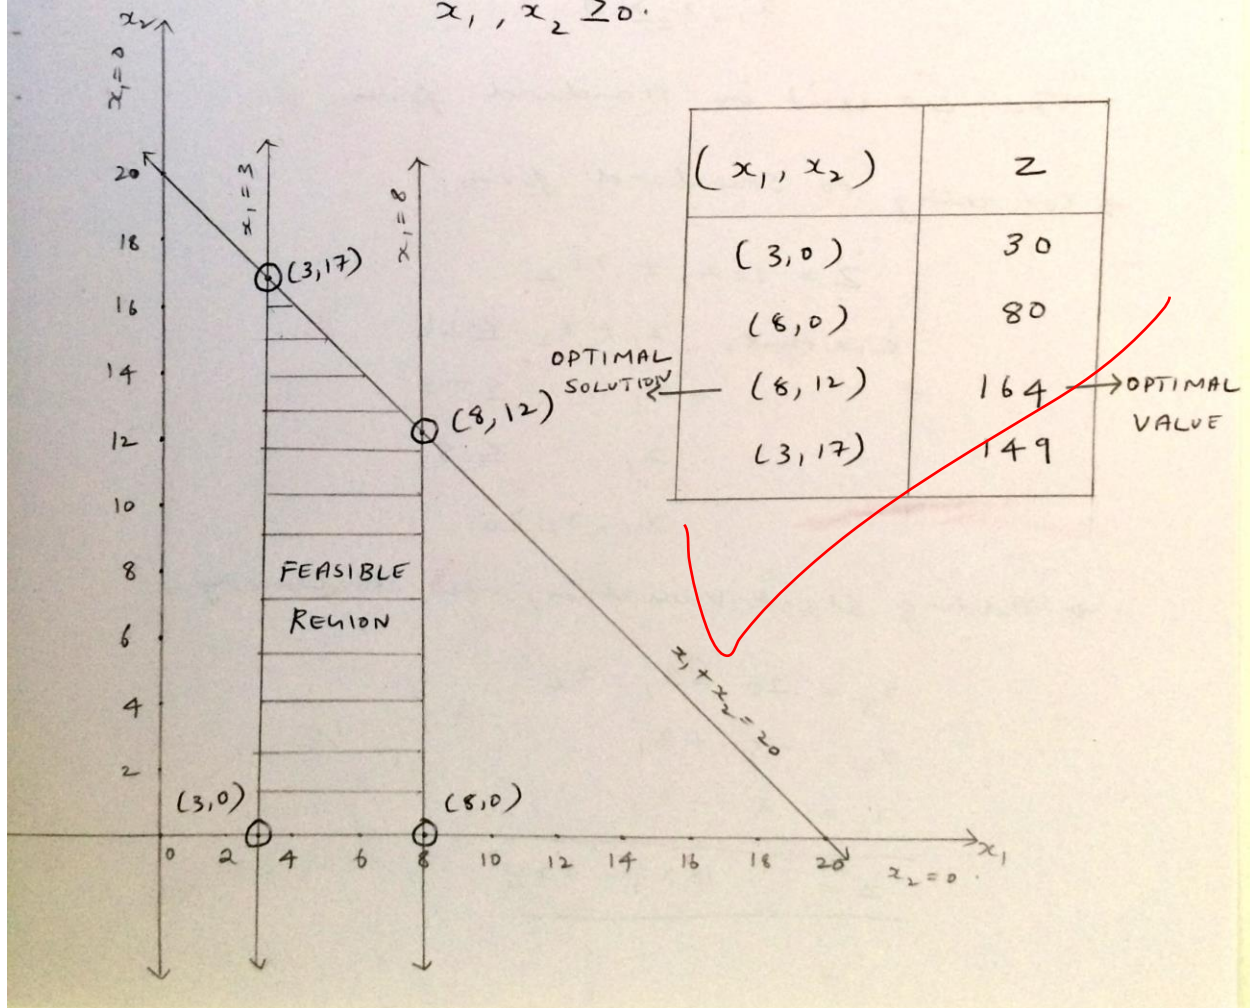 x₁, x₂ ≥ 0.
x₂
x₁ = 0
20
18
16
14
12
10
8
6
4
2
x₁ = 3
x₁ = 8
(3,17)
(8,12)
FEASIBLE
REGION
(3,0)
(8,0)
x₁ + x₂ = 20
0 2 4 6 8 10 12 14 16 18 20
x₁
x₂ = 0
(x₁, x₂) Z
(3,0) 30
(8,0) 80
(8,12) 164
(3,17) 149
OPTIMAL
SOLUTION
OPTIMAL
VALUE